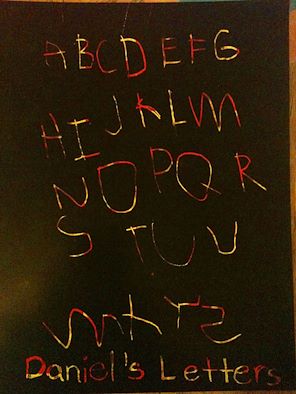 ABCDEFG
HIJKLM
NOPQR
STUV
WXYZ
Daniel's Letters